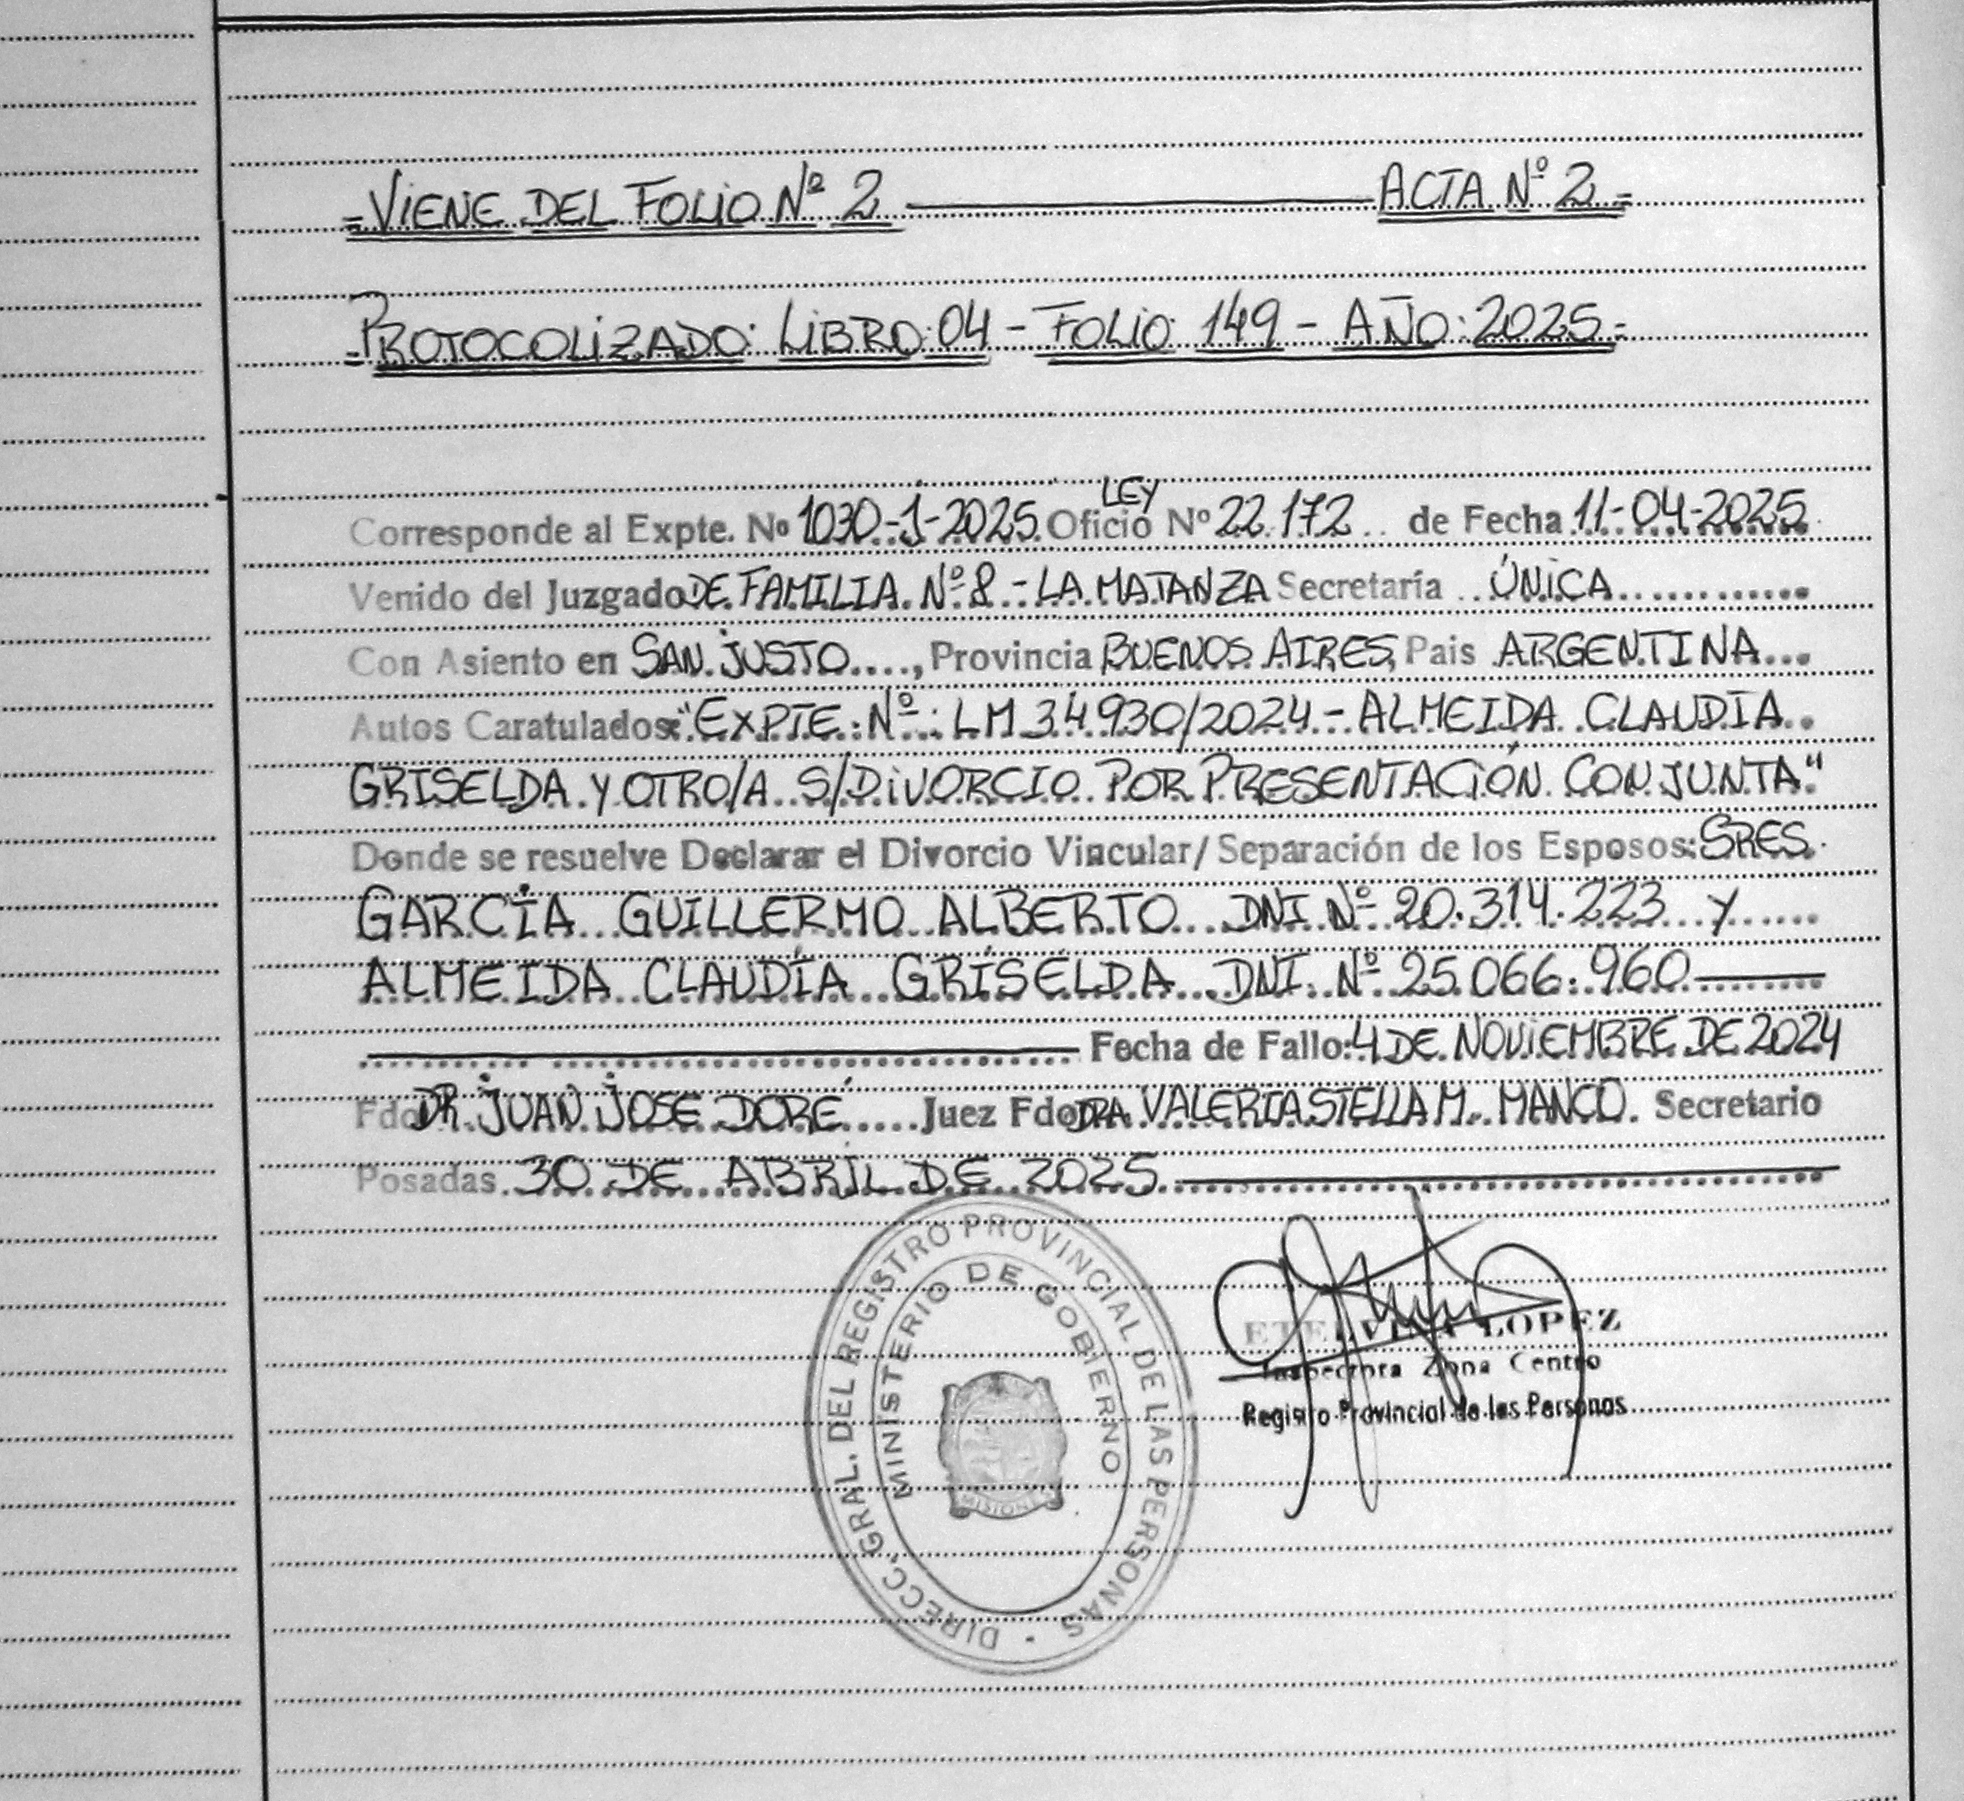 =VIENE DEL FOLIO Nº 2 ——— ACTA Nº 2=
=PROTOCOLIZADO: LIBRO: 04 - FOLIO: 149 - AÑO: 2025=
LEY
Corresponde al Expte. Nº 1030-J-2025 Oficio Nº 22.172 de Fecha 11-04-2025
Venido del Juzgado DE FAMILIA Nº 8 - LA MATANZA Secretaría ÚNICA
Con Asiento en SAN JUSTO...., Provincia BUENOS AIRES, Pais ARGENTINA...
Autos Caratulados: "EXPTE. Nº: LM 34.930/2024 - ALMEIDA CLAUDIA
GRISELDA Y OTRO/A S/DIVORCIO POR PRESENTACIÓN CONJUNTA"
Donde se resuelve Declarar el Divorcio Vincular/ Separación de los Esposos: SRES.
GARCÍA GUILLERMO ALBERTO DNI Nº 20.314.223 Y
ALMEIDA CLAUDÍA GRÍSELDA DNI. Nº 25.066.960
Fecha de Fallo: 4 DE NOVIEMBRE DE 2024
Fdo DR. JUAN JOSE DORÉ..... Juez Fdo DRA. VALERIA STELLA M. MANCO. Secretario
Posadas 30 DE ABRIL DE 2025
DIRECC. GRAL. DEL REGISTRO PROVINCIAL DE LAS PERSONAS
MINISTERIO DE GOBIERNO
MISIONES
ETELVINA LOPEZ
Inspectora Zona Centro
Registro Provincial de las Personas